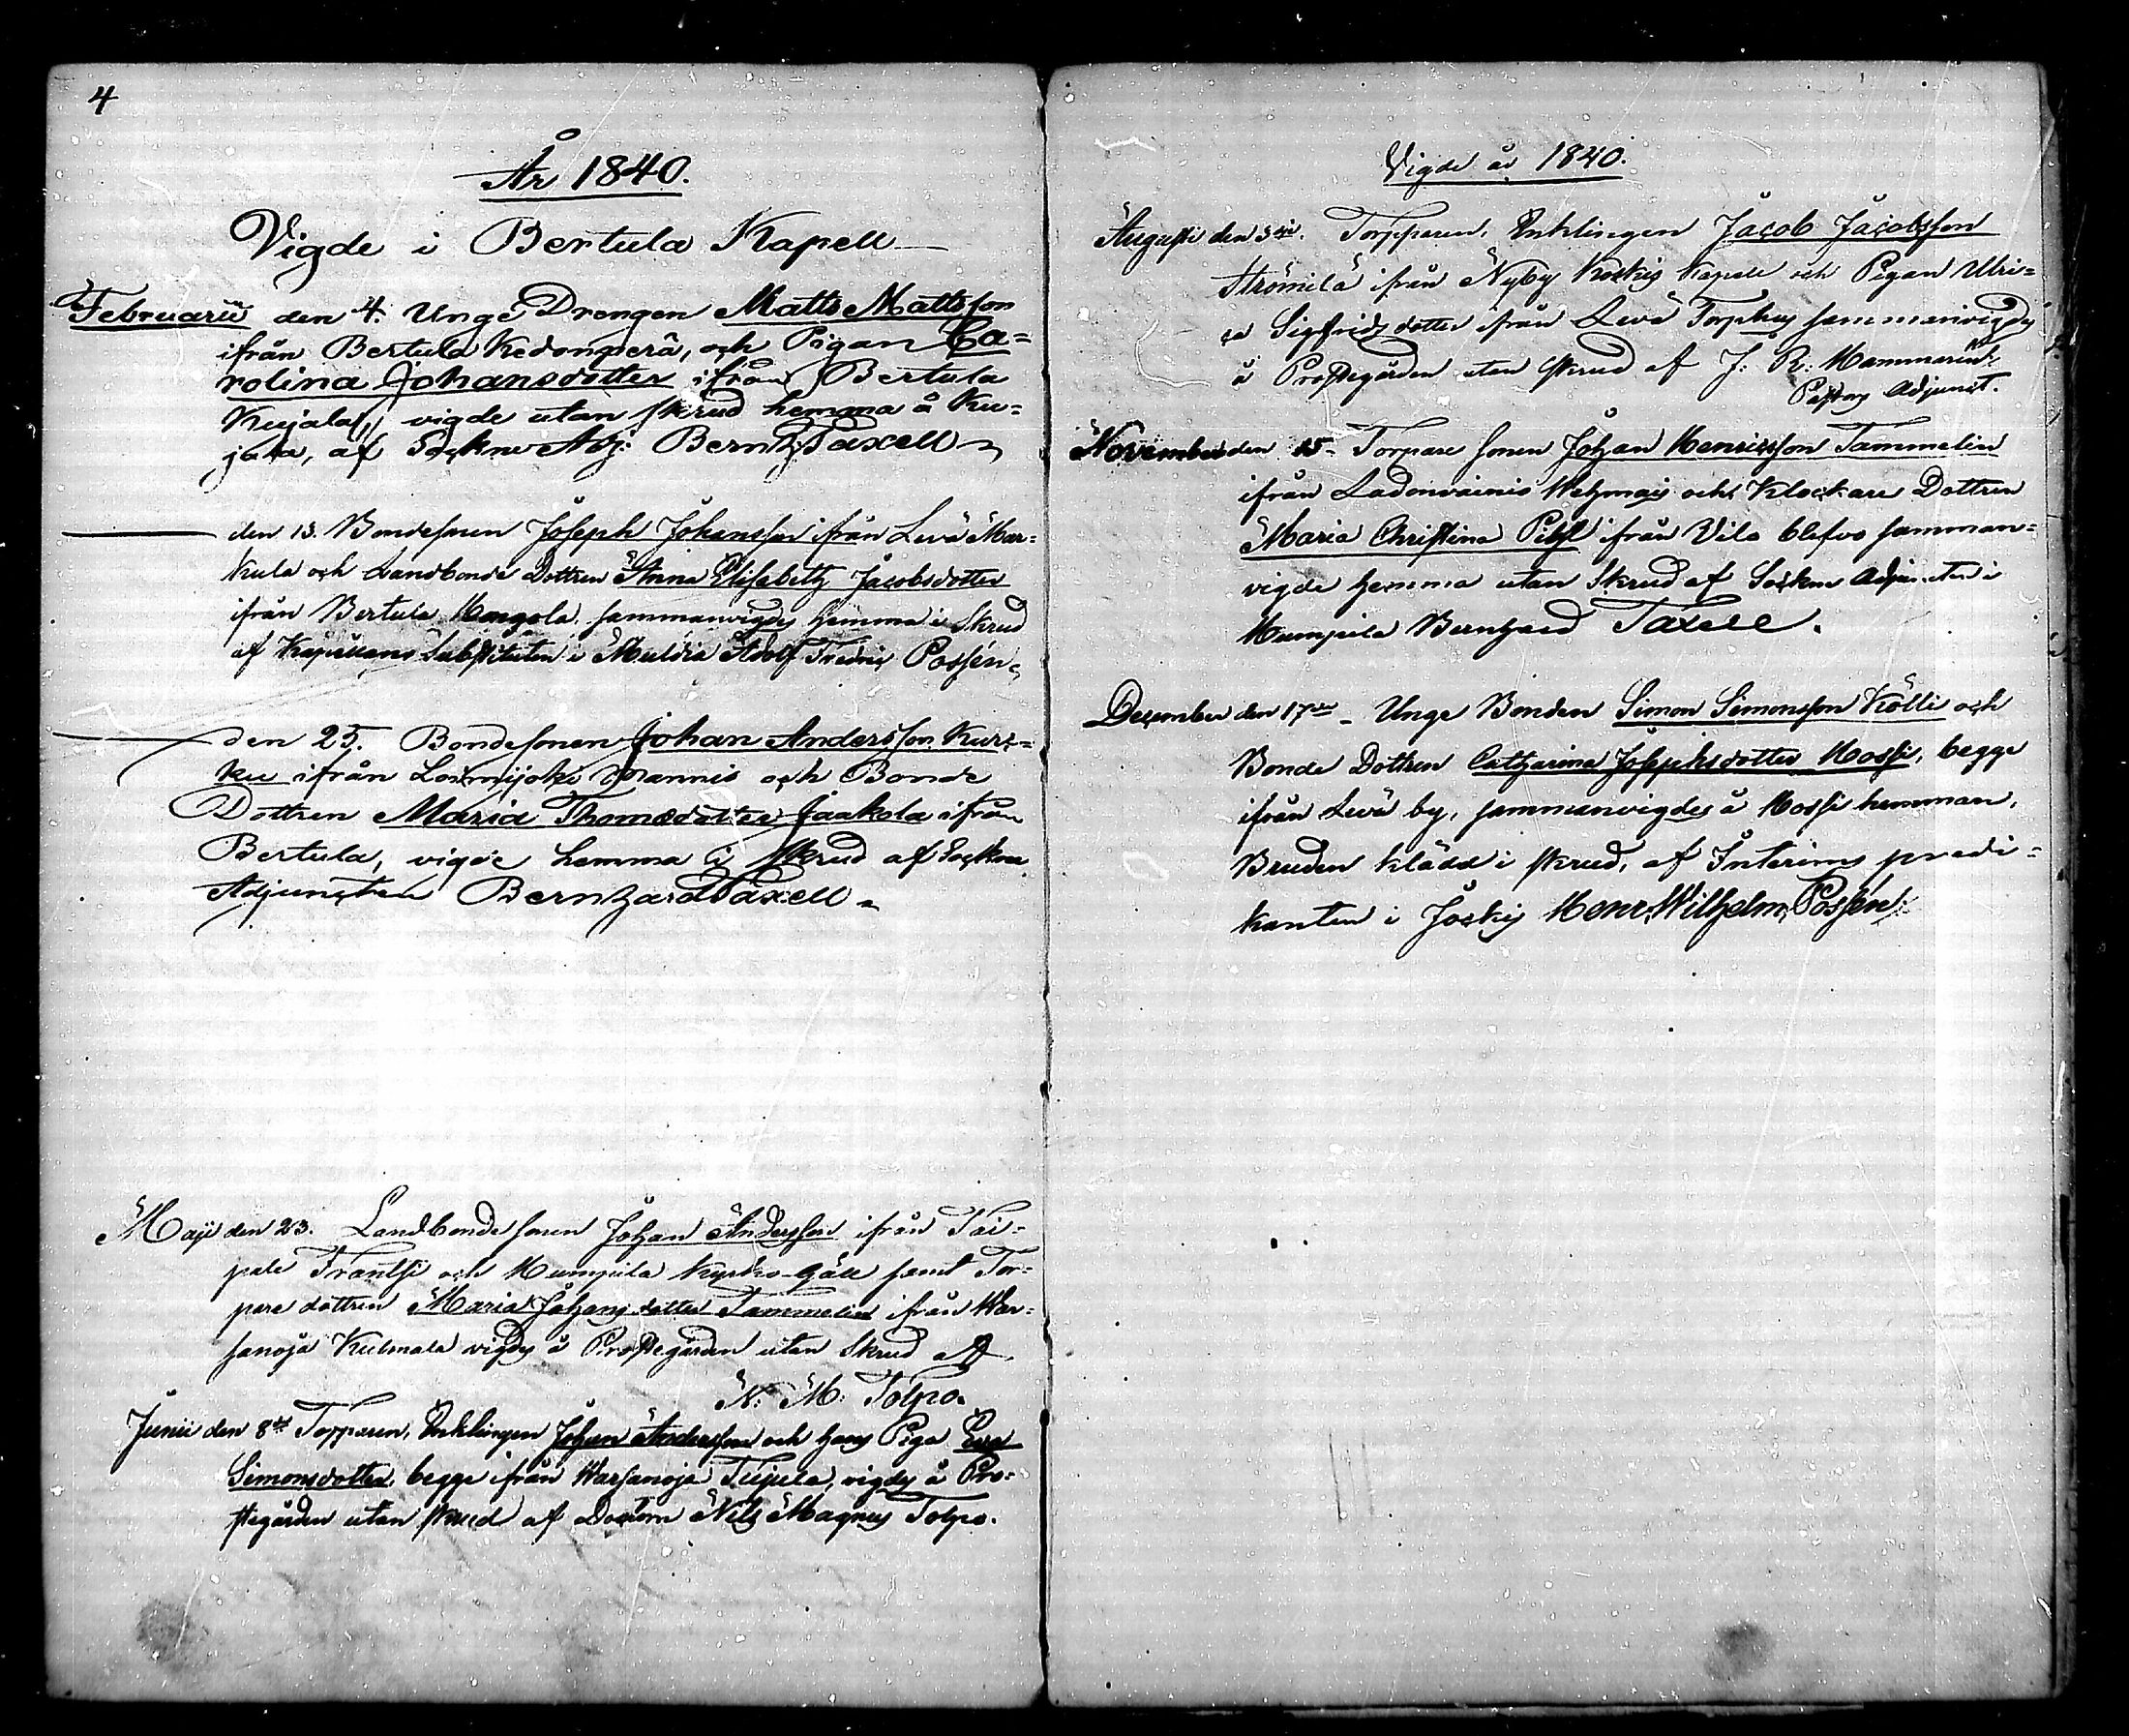 4
År 1840.
Vigde i Bertula Kapell
Februarii den 4. Unge Drengen Matts Mattsson
ifrån Bertula Kedonperä, och Pigan Ca=
rolina Johansdotter ifrån Bertula
Kujala, vigde utan skrud hemma å Ku=
jala, af Sockne Adj: Bernh. Taxell
den 13. Bondesonen Joseph Johansson ifrån Levä Mar=
kula och Landbonde Dottren Anna Elisabeth Jacobsdotter
ifrån Bertula Mangola sammanvigdes hemma i Skrud
af Kapellans Substituten i Muldia Adolf Fredric Possén
den 25. Bondesonen Johan Andersson Kurc=
ku ifrån Loimijoki Mannis och Bonde
Dottren Maria Thomædotter Jaakola ifrån
Bertula, vigde hemma i Skrud af Sockne
Adjuncten Bernhard Taxell
Maji den 23. Landbonde sonen Johan Andersson ifrån Tai=
pale Frantsi och Humpila Kyrko-Gäll samt Tor=
pare dottren Maria Johans dotter Tammelin ifrån War=
sanoja Kulmala vigdes å Prostegården utan Skrud aff
N: M: Tolpo.
Junii den 8de Torpparen, Enklingen Johan Andersson och hans Piga Eva
Simonsdotter begge ifrån Warsanoja Tujula, vigdes å Pro=
stegården utan skrud af Doctorn Nils Magnus Tolpo.
Vigde år 1840.
Augusti den 3die. Torpparen, Enklingen Jacob Jacobsson
Strömilä ifrån Nyby Koskis Kapell och Pigan Ulri=
ca Sigfrids dotter ifrån Levä Torphus sammanvigdes
å Prostegården utan Skrud af J: R: Hammarin
Pastors Adjunct.
November den 15. Torpare sonen Johan Henricsson Tammelin
ifrån Ladonvainio Wehmais och Klockare Dottren
Maria Christina Pihl ifrån Vila blefvo samman=
vigde hemma utan Skrud af Sockne Adjuncten i
Humpila Bernhard Taxell.
December den 17de Unge Bonden Simon Simonsson Kölli och
Bonde Dottren Catharina Josephsdotter Hossi, begge
ifrån Levä by, sammanvigdes å Hossi hemman,
Bruden klädd i skrud, af Interims predi=
kanten i Jockis Henr. Wilhelm Possén